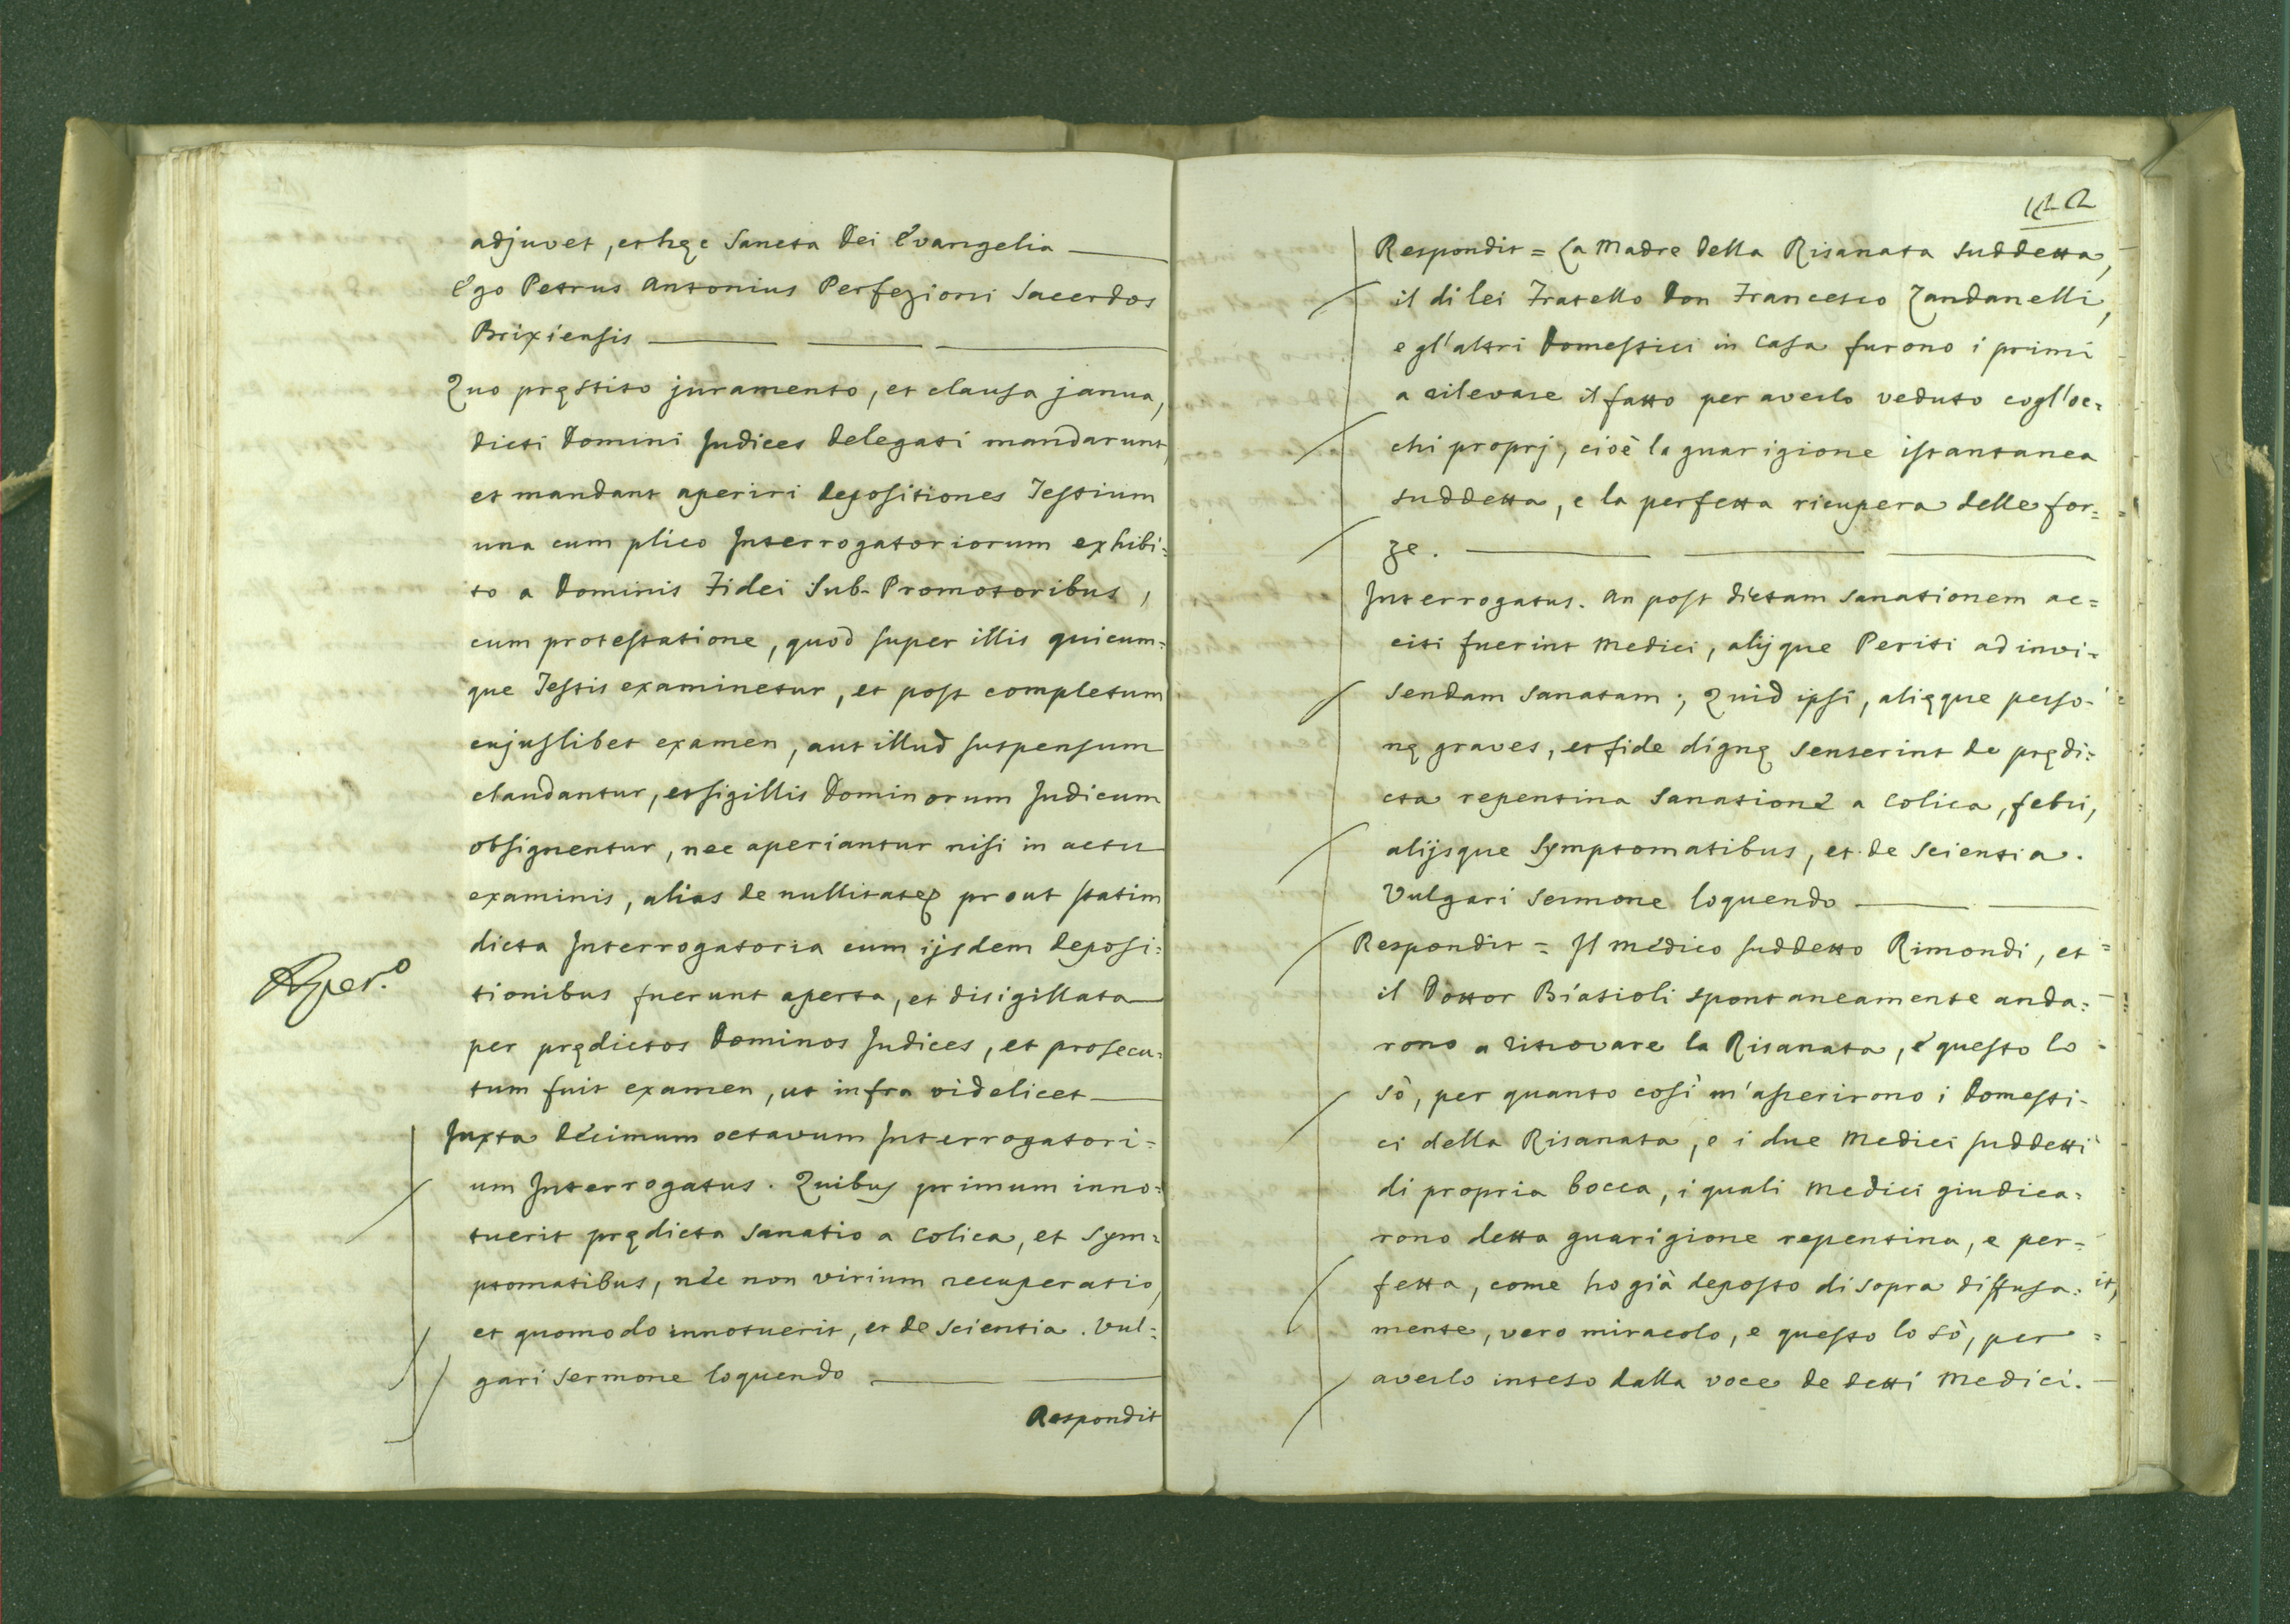 adjuvet, et hęc Sancta Dei Evangelia
Ego Petrus Antonius Perfezioni Sacerdos
Brixiensis
Quo pręstito juramento, et clausa janua,
dicti Domini Judices Delegati mandarunt,
et mandant aperiri Depositiones Testium
una cum plico Interrogatoriorum exhibi=
to a Dominis Fidei Sub-Promotoribus,
cum protestatione, quod super illis quicum=
que Testis examinetur, et post completum
cujuslibet examen, aut illud suspensum
claudantur, et sigillis Dominorum Judicum
obsignentur, nec aperiantur nisi in actu
examinis, alias de nullitate prout statim
dicta Interrogatoria cum ijsdem Deposi=
Aper.o
tionibus fuerunt aperta, et disigillata
per prędictos Dominos Judices, et prosecu=
tum fuit examen, ut infra videlicet
Juxta Decimum octavum Interrogatori=
um Interrogatus. Quibus primum inno=
tuerit prędicta Sanatio a Colica, et Sym=
ptomatibus, nec non virium recuperatio,
et quomodo innotuerit, et de scientia. Vul=
gari Sermone loquendo
Respondit
Respondit = La Madre della Risanata suddetta,
il di lei Fratello Don Francesco Zandanelli,
e gl'altri Domestici in Casa furono i primi
a rilevare il fatto per averlo veduto cogl'oc=
chi proprj, cioè la guarigione istantanea
suddetta, e la perfetta ricupera delle for=
ze.
Interrogatus. An post dictam Sanationem ac=
citi fuerint Medici, alijque Periti ad invi=
sendam Sanatam; Quid ipsi, alięque perso=
nę graves, et fide dignę senserint de prędi=
cta repentina Sanatione a Colica, febri,
alijsque Symptomatibus, et de scientia.
Vulgari Sermone loquendo
Respondit = Il medico suddetto Rimondi, et
il Dottor Biasioli spontaneamente anda=
rono a ritrovare la Risanata, e questo lo
sò, per quanto così m'asserirono i Domesti=
ci della Risanata, e i due Medici suddetti
di propria bocca, i quali Medici giudica=
rono detta guarigione repentina, e per=
fetta, come ho già deposto di sopra diffusa=
mente, vero miracolo, e questo lo sò, per
averlo inteso dalla voce de detti Medici.